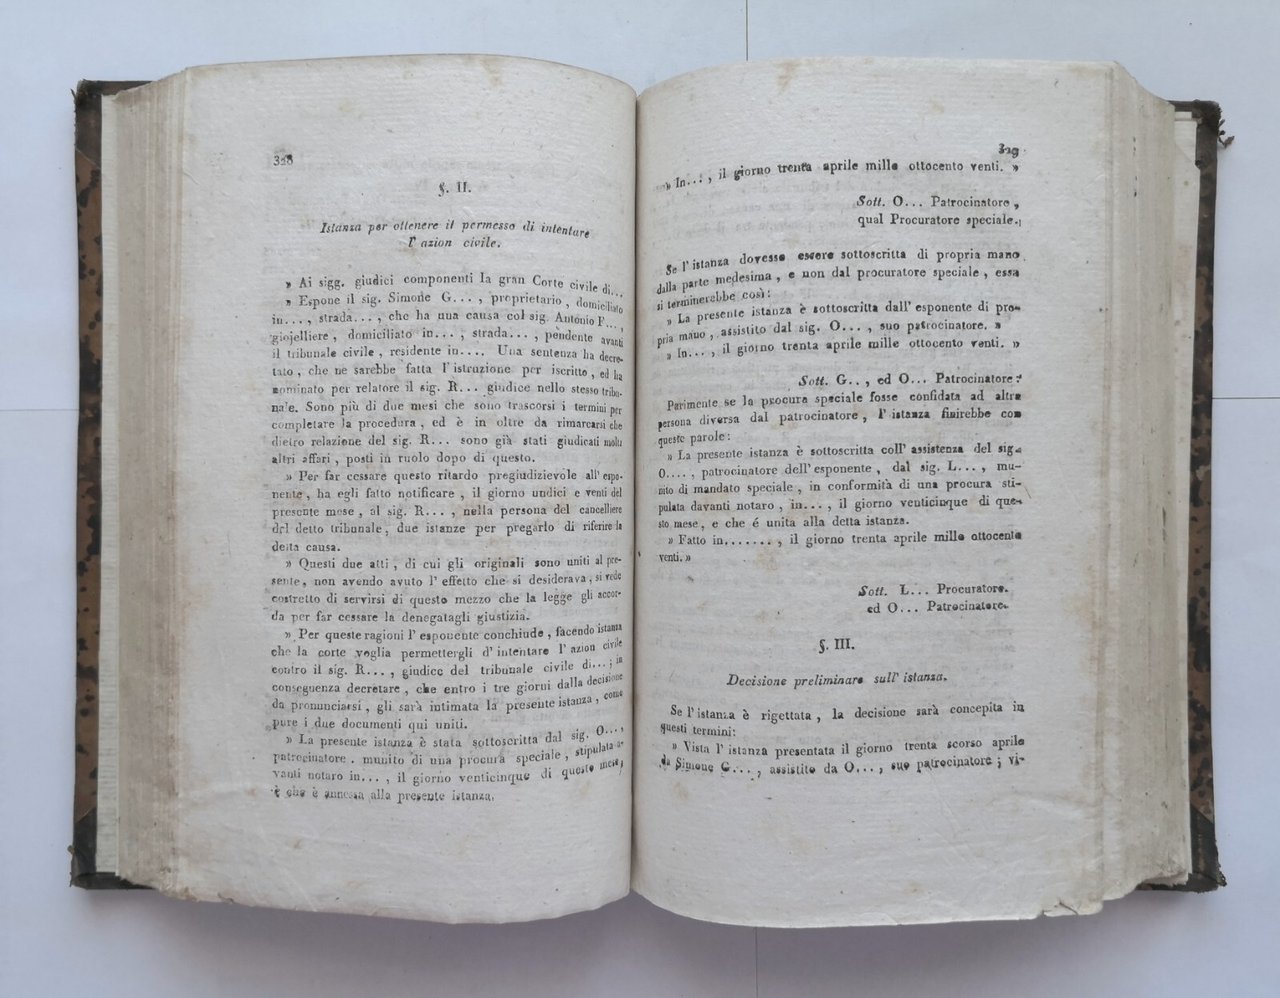 328
§. II.
Istanza per ottenere il permesso di intentare
l' azion civile.
» Ai sigg. giudici componenti la gran Corte civile di...
» Espone il sig. Simone G... , proprietario , domiciliato
in... , strada... , che ha una causa col sig. Antonio F... ,
giojelliere , domiciliato in... , strada... , pendente avanti
il tribunale civile , residente in.... Una sentenza ha decre-
tato , che ne sarebbe fatta l' istruzione per iscritto , ed ha
nominato per relatore il sig. R... giudice nello stesso tribu-
na'e. Sono più di due mesi che sono trascorsi i termini per
completare la procedura , ed è in oltre da rimarcarsi che
dietro relazione del sig. R... sono già stati giudicati molti
altri affari , posti in ruolo dopo di questo.
» Per far cessare questo ritardo pregiudizievole all' espo-
nente , ha egli fatto notificare , il giorno undici e venti del
presente mese , al sig. R... , nella persona del cancelliere
del detto tribunale , due istanze per pregarlo di riferire la
detta causa.
» Questi due atti , di cui gli originali sono uniti al pre-
sente , non avendo avuto l' effetto che si desiderava , si vede
costretto di servirsi di questo mezzo che la legge gli accor-
da per far cessare la denegatagli giustizia.
» Per queste ragioni l' esponente conchiude , facendo istanza
che la corte voglia permettergli d' intentare l' azion civile
contro il sig. R... , giudice del tribunale civile di... ; in
conseguenza decretare , che entro i tre giorni dalla decisione
da pronunciarsi , gli sarà intimata la presente istanza , come
pure i due documenti qui uniti.
» La presente istanza è stata sottoscritta dal sig. O... ,
patrocinatore . munito di una procura speciale , stipulata a-
vanti notaro in... , il giorno venticinque di questo mese ,
e che è annessa alla presente istanza.
329
» In... , il giorno trenta aprile mille ottocento venti. »
Sott. O... Patrocinatore ,
qual Procuratore speciale.
Se l' istanza dovesse essere sottoscritta di propria mano
dalla parte medesima , e non dal procuratore speciale , essa
si terminerebbe così:
» La presente istanza è sottoscritta dall' esponente di pro-
pria mano , assistito dal sig. O... , suo patrocinatore. »
» In... , il giorno trenta aprile mille ottocento venti. »
Sott. G.. , ed O... Patrocinatore.
Parimente se la procura speciale fosse confidata ad altra
persona diversa dal patrocinatore , l' istanza finirebbe con
queste parole:
» La presente istanza è sottoscritta coll' assistenza del sig.
O.... , patrocinatore dell' esponente , dal sig. L... , mu-
nito di mandato speciale , in conformità di una procura sti-
pulata davanti notaro , in... , il giorno venticinque di que-
sto mese , e che é unita alla detta istanza.
» Fatto in....... , il giorno trenta aprile mille ottocento
venti. »
Sott. L... Procuratore.
ed O... Patrocinatore.
§. III.
Decisione preliminare sull' istanza.
Se l' istanza è rigettata , la decisione sarà concepita in
questi termini:
» Vista l' istanza presentata il giorno trenta scorso aprile
da Simone G... , assistito da O... , suo patrocinatore ; vi-